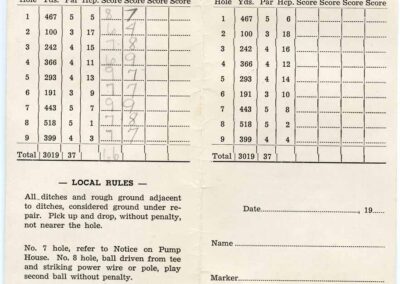 Hole Yds. Par Hcp. Score Score Score Score
1 467 5 5 8 7
2 100 3 17 6 4
3 242 4 15 7 8
4 366 4 11 8 9
5 293 4 13 9 7
6 191 3 9 7 7
7 443 5 7 9 9
8 518 5 1 7 8
9 399 4 3 7 7
Total 3019 37
— LOCAL RULES —
All ditches and rough ground adjacent
to ditches, considered ground under re-
pair. Pick up and drop, without penalty,
not nearer the hole.
No. 7 hole, refer to Notice on Pump
House. No. 8 hole, ball driven from tee
and striking power wire or pole, play
second ball without penalty.
Hole Yds. Par Hcp. Score Score Score Score
1 467 5 6
2 100 3 18
3 242 4 16
4 366 4 12
5 293 4 14
6 191 3 10
7 443 5 8
8 518 5 2
9 399 4 4
Total 3019 37
Date, 19
Name
Marker